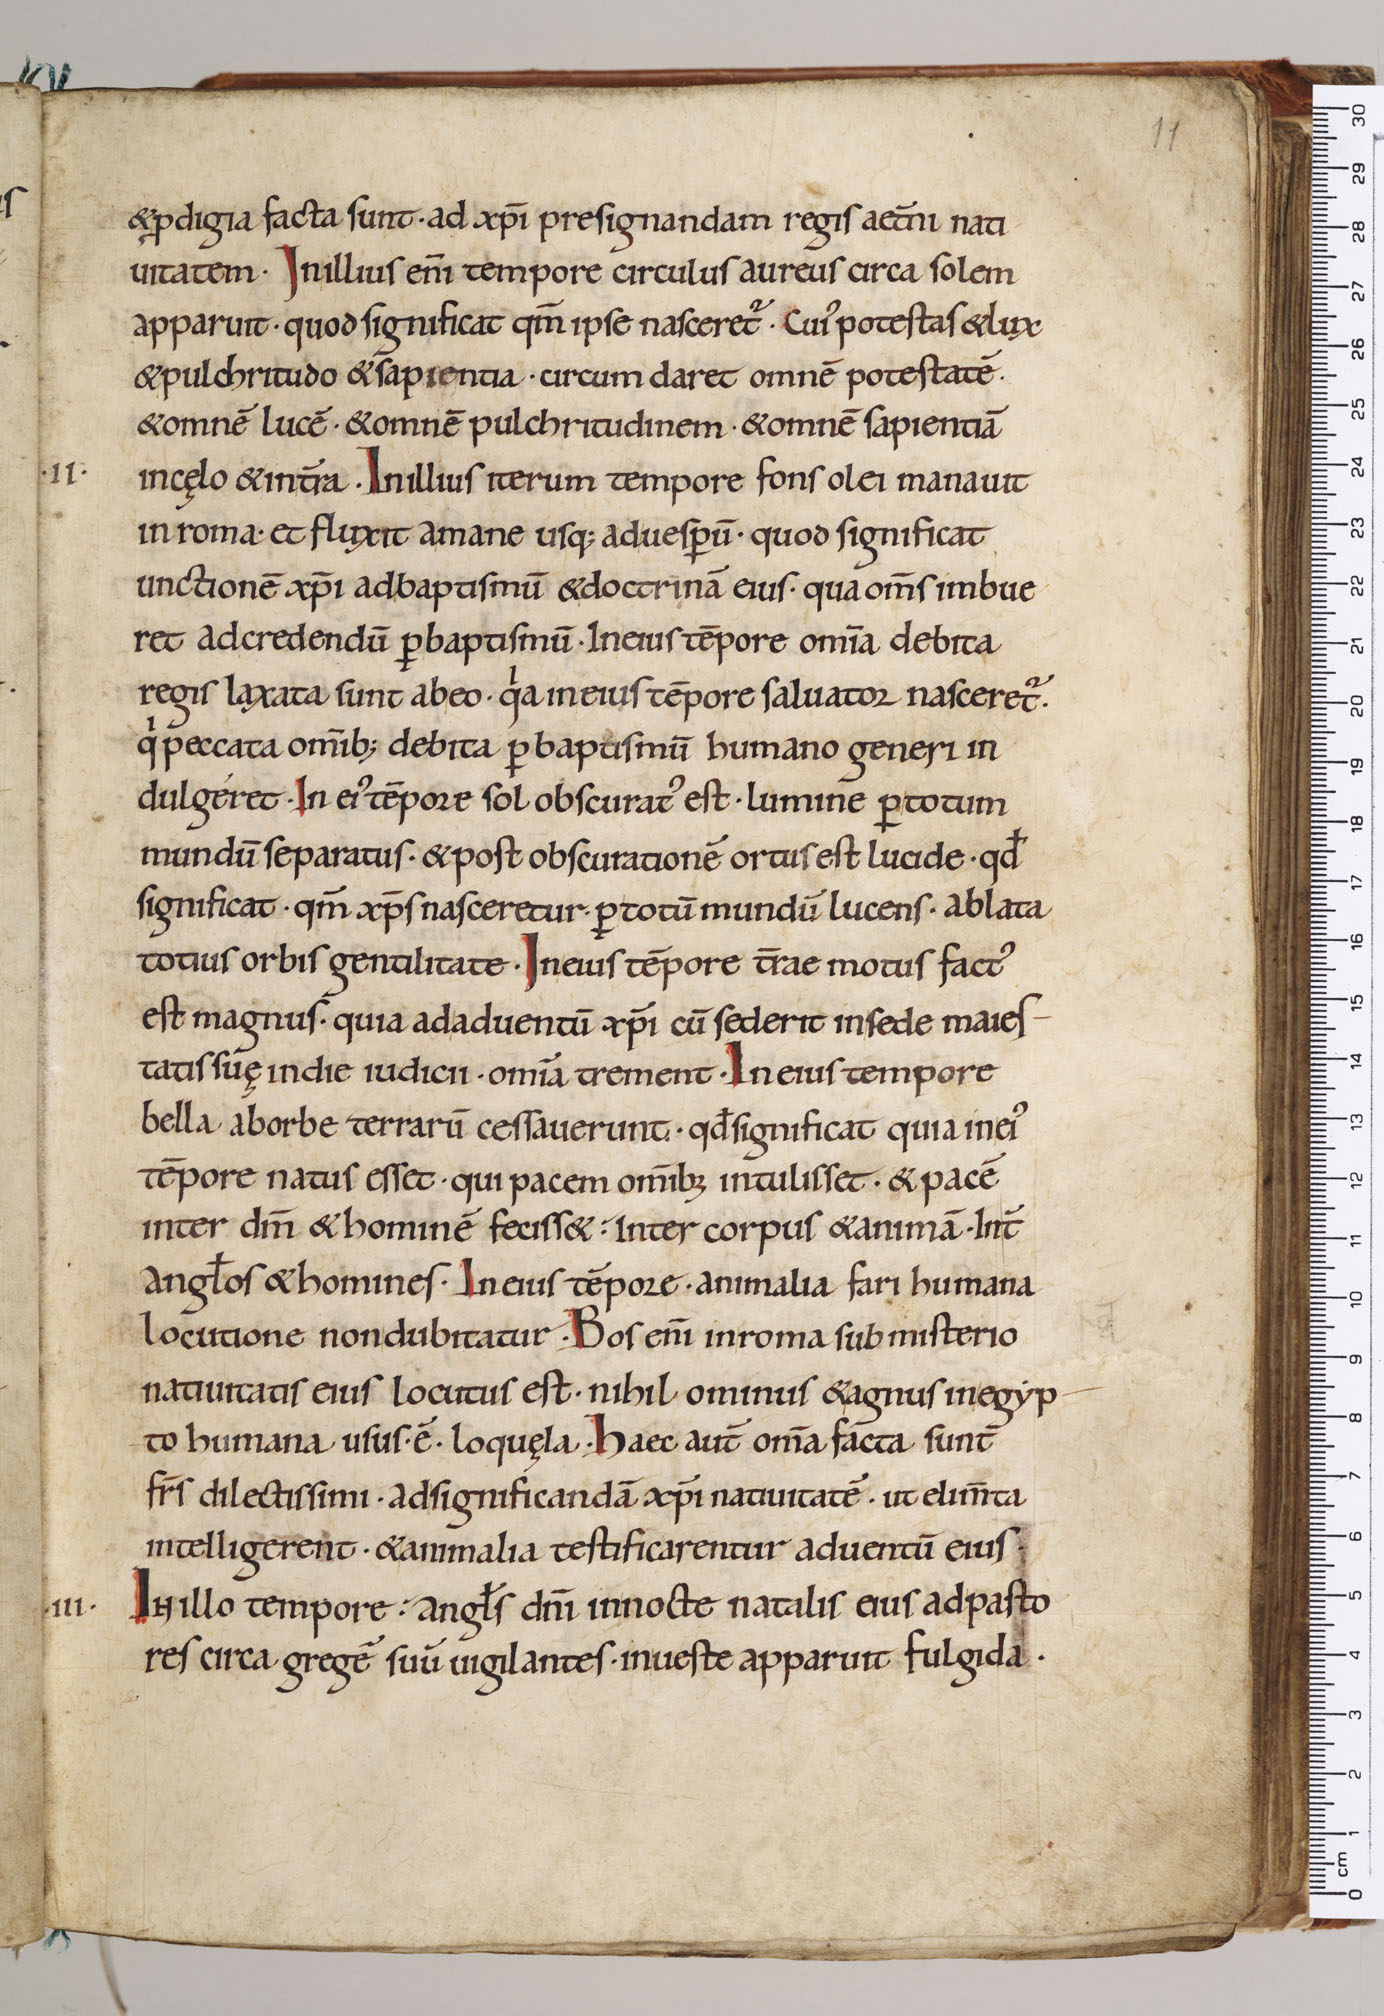 11
&ꝓdigia facta sunt · ad xp̄i presignandam regis aet̄ni nati
uitatem · Inillius eni̅ tempore circulus aureus circa solem
apparuit · quod significat qm̅ ipse nasceret᷑ · Cuiꝰ potestas & lux
& pulchritudo & sapientia · circum daret omnē potestatē ·
& omnē lucē · & omnē pulchritudinem · & omnē sapientiā
·II· incęlo & int̄ra · Inillius iterum tempore fons olei manauit
in roma · et fluxit amane usq; aduesꝑū · quod significat
unctionē xp̄i adbaptismū & doctrinā eius · qua om̄s imbue
ret adcredendū ꝑ baptismū · Ineius tēpore omīa debita
regis laxata sunt abeo · qͥa ineius tēpore saluator nasceret᷑ ·
qͥ peccata omīb; debita ꝑ baptismū humano generi in
dulgéret · In eiꝰ tēpore sol obscuratꝰ est · lumine ꝑ totum
mundū separatus · & post obscurationē ortus est lucide · qđ
significat · qm̅ xp̄s nasceretur · ꝑ totū mundū lucens · ablata
totius orbis gentilitate · Ineius tēpore t̄rae motus factꝰ
est magnus · quia adaduentū xp̄i cū sederit insede maies-
tatis suę indie iudicii · omīa trement · In eius tempore
bella aborbe terrarū cessauerunt · qđ significat quia ineiꝰ
tēpore natus esset · qui pacem omīb; intulisset · & pacē
inter dm̄ & hominē feciss& : Inter corpus & animā · Int̄
angłos & homines · In eius tēpore · animalia fari humana
locutione nondubitatur · Bos eni̅ inroma sub misterio
natiuitatis eius locutus est · nihil ominus & agnus inegyp-
to humana usus · ē · loquęla · Haec aut̄ om̄a facta sunt
fr̄s dilectissimi · adsignificandā xp̄i natiuitatē · ut elim̄ta
intelligerent · & animalia testificarentur aduentū eius ·
·III· IN illo tempore : angłs dn̄i innocte natalis eius adpasto
res circa gregē suū uigilantes · inueste apparuit fulgida ·